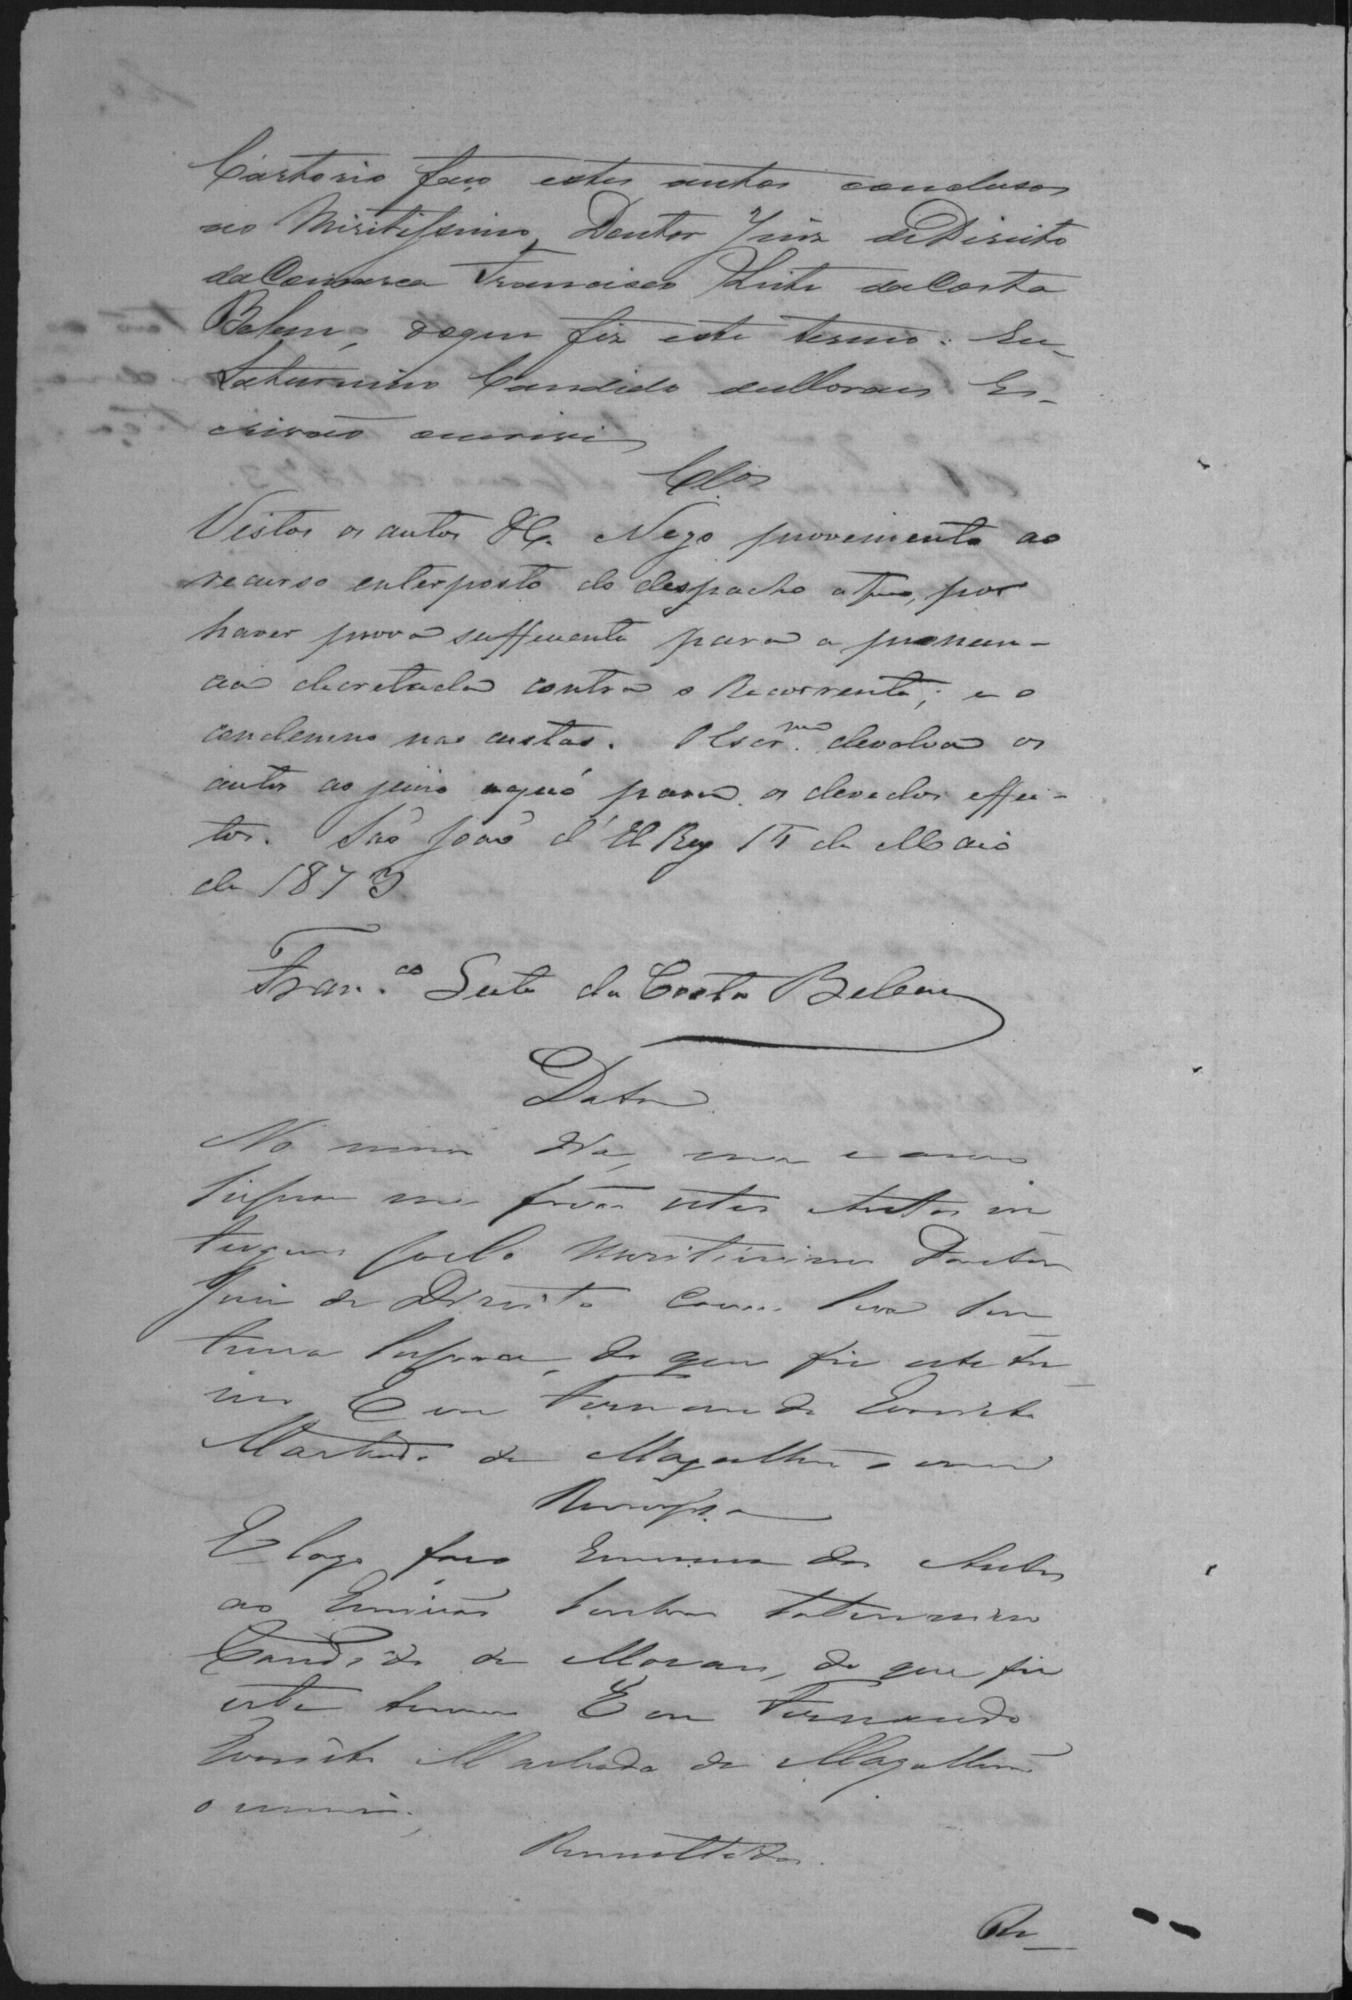 Cartorio faço estes autos conclusos
ao Miritissimo Doutor Juiz de Direito
da Comarca Francisco Leite da Costa
Belem, doque fiz este termo. Eu
Saturnino Candido de Moraes Es-
crivão escrivi
Clos
Vistos os autos &. Nego provimento ao
recurso enterposto do despacho a f, por
haver prova sufficiente para a pronun-
cia decretada contra o Recorrente; e o
condemno nas custas. O Escr.m devolva os
autos ao juiso a quó para os devedos effei-
tos. São João d'El Rey 15 de Maio
de 1873
Fran.co Leite da Costa Belem
Data
No mesmo dia, mez e anno
supra me forão estes Autos en
tregues pelo Meritissimo Doutor
Juiz de Direito com sua Sen
tença supra, do que fiz este ter
mo Eu Fernando Evaristo
Machado de Magalhães o escrevi
Remessa
E logo faço remessa dos Autos
ao Escrivão Saturnino
Candido de Moraes, do que fiz
este termo Eu Fernando
Evaristo Machado de Magalhães
o escrevi.
Remettidos
Re